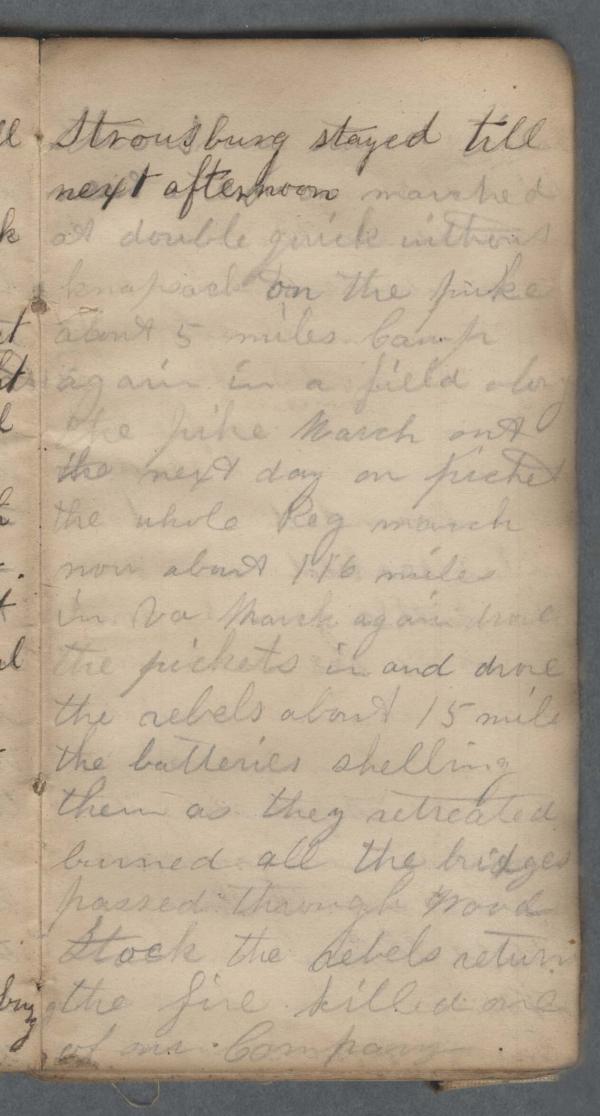 Strousburg stayed till
next afternoon marched
at double quick without
knapsack on the pike
about 5 miles Camp
again in a field along
the pike March out
the next day on picket
the whole Reg march
now about 116 miles
in Va March again drove
the pickets in and drove
the rebels about 15 mile
the batteries shelling
them as they retreated
burned all the bridges
passed through Wood
Stock the Rebels return
the fire killed one
of our Company